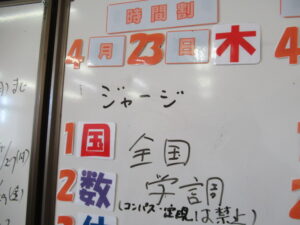 時間割
4月23日木
ジャージ
1 国 全国
2 数 学調
(コンパス・定規は禁止)
3
4